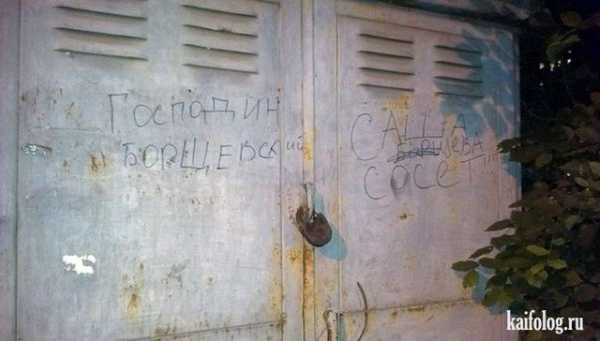 Господин
Борщевский
САША
Борщева
СОСЁТ!!!
kaifolog.ru